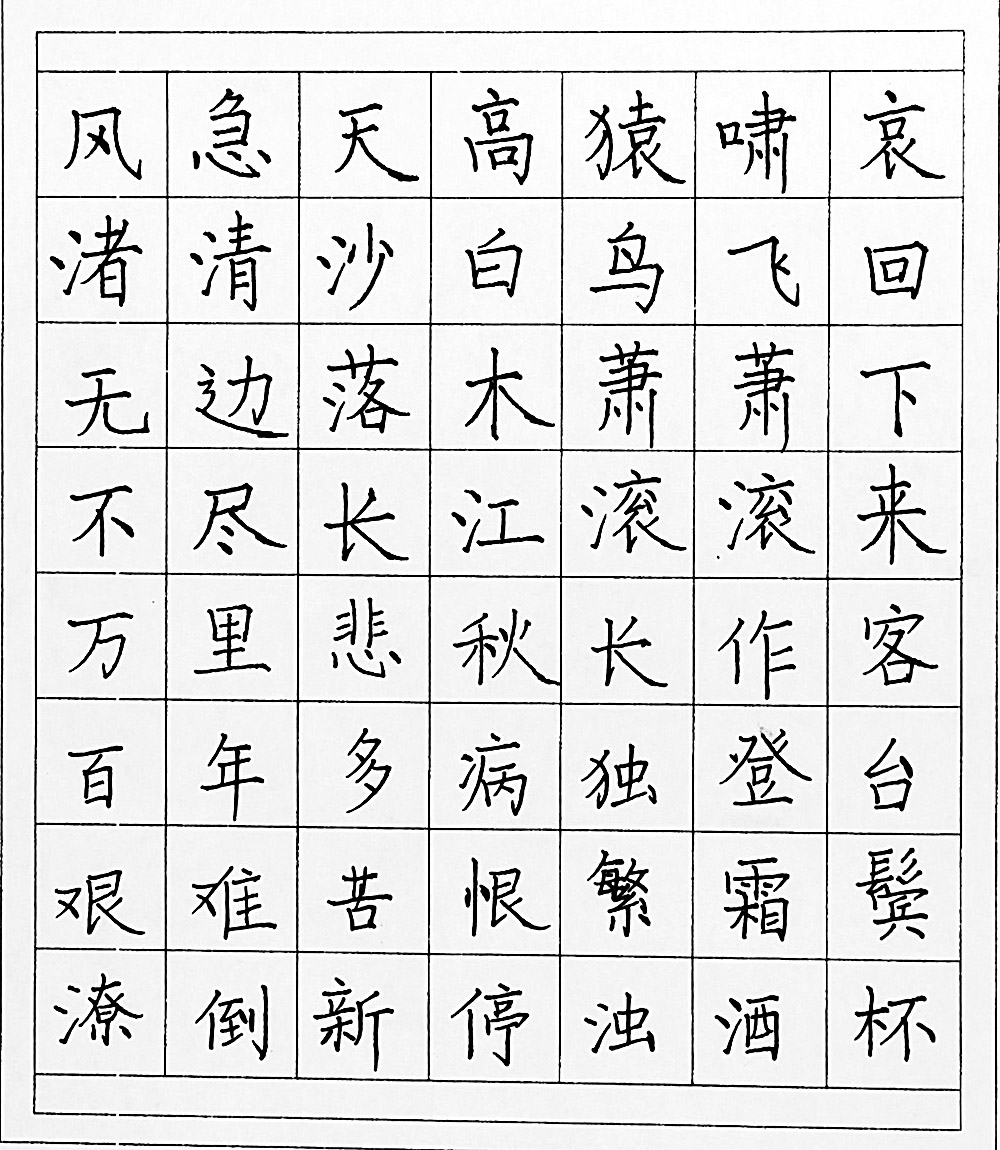 风急天高猿啸哀
渚清沙白鸟飞回
无边落木萧萧下
不尽长江滚滚来
万里悲秋长作客
百年多病独登台
艰难苦恨繁霜鬓
潦倒新停浊酒杯